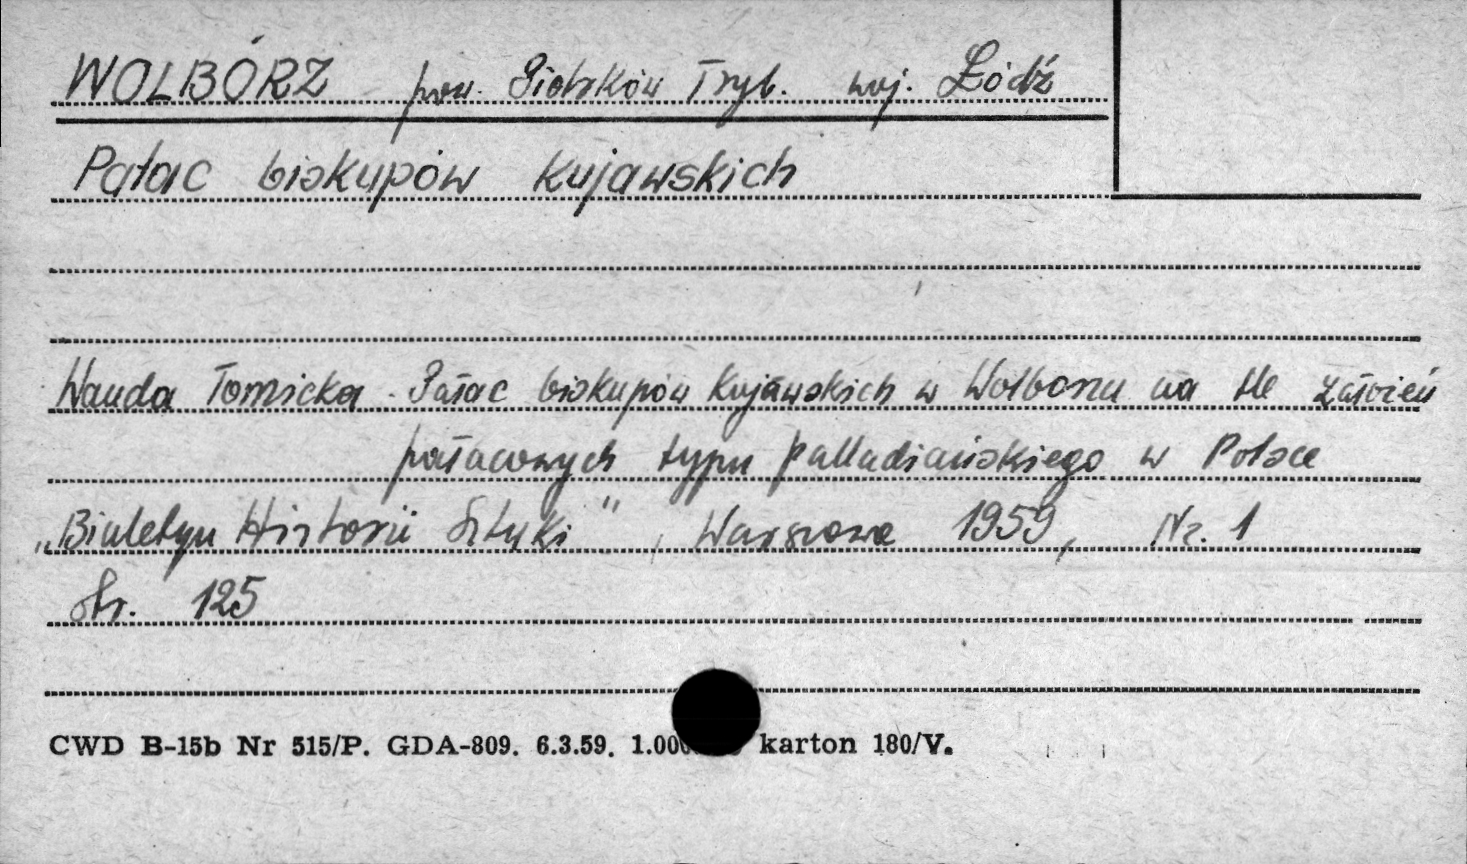 WOLBÓRZ pow. Piotrków Tryb. woj. Łódź
Pałac biskupów Kujawskich
Wanda Tomicka Pałac biskupów Kujawskich w Wolborzu na tle założeń
pałacowych typu palladiańskiego w Polsce
„Biuletyn Historii Sztuki", Warszawa 1959, Nr. 1
Str. 125
CWD B-15b Nr 515/P. GDA-809. 6.3.59. karton 180/V.